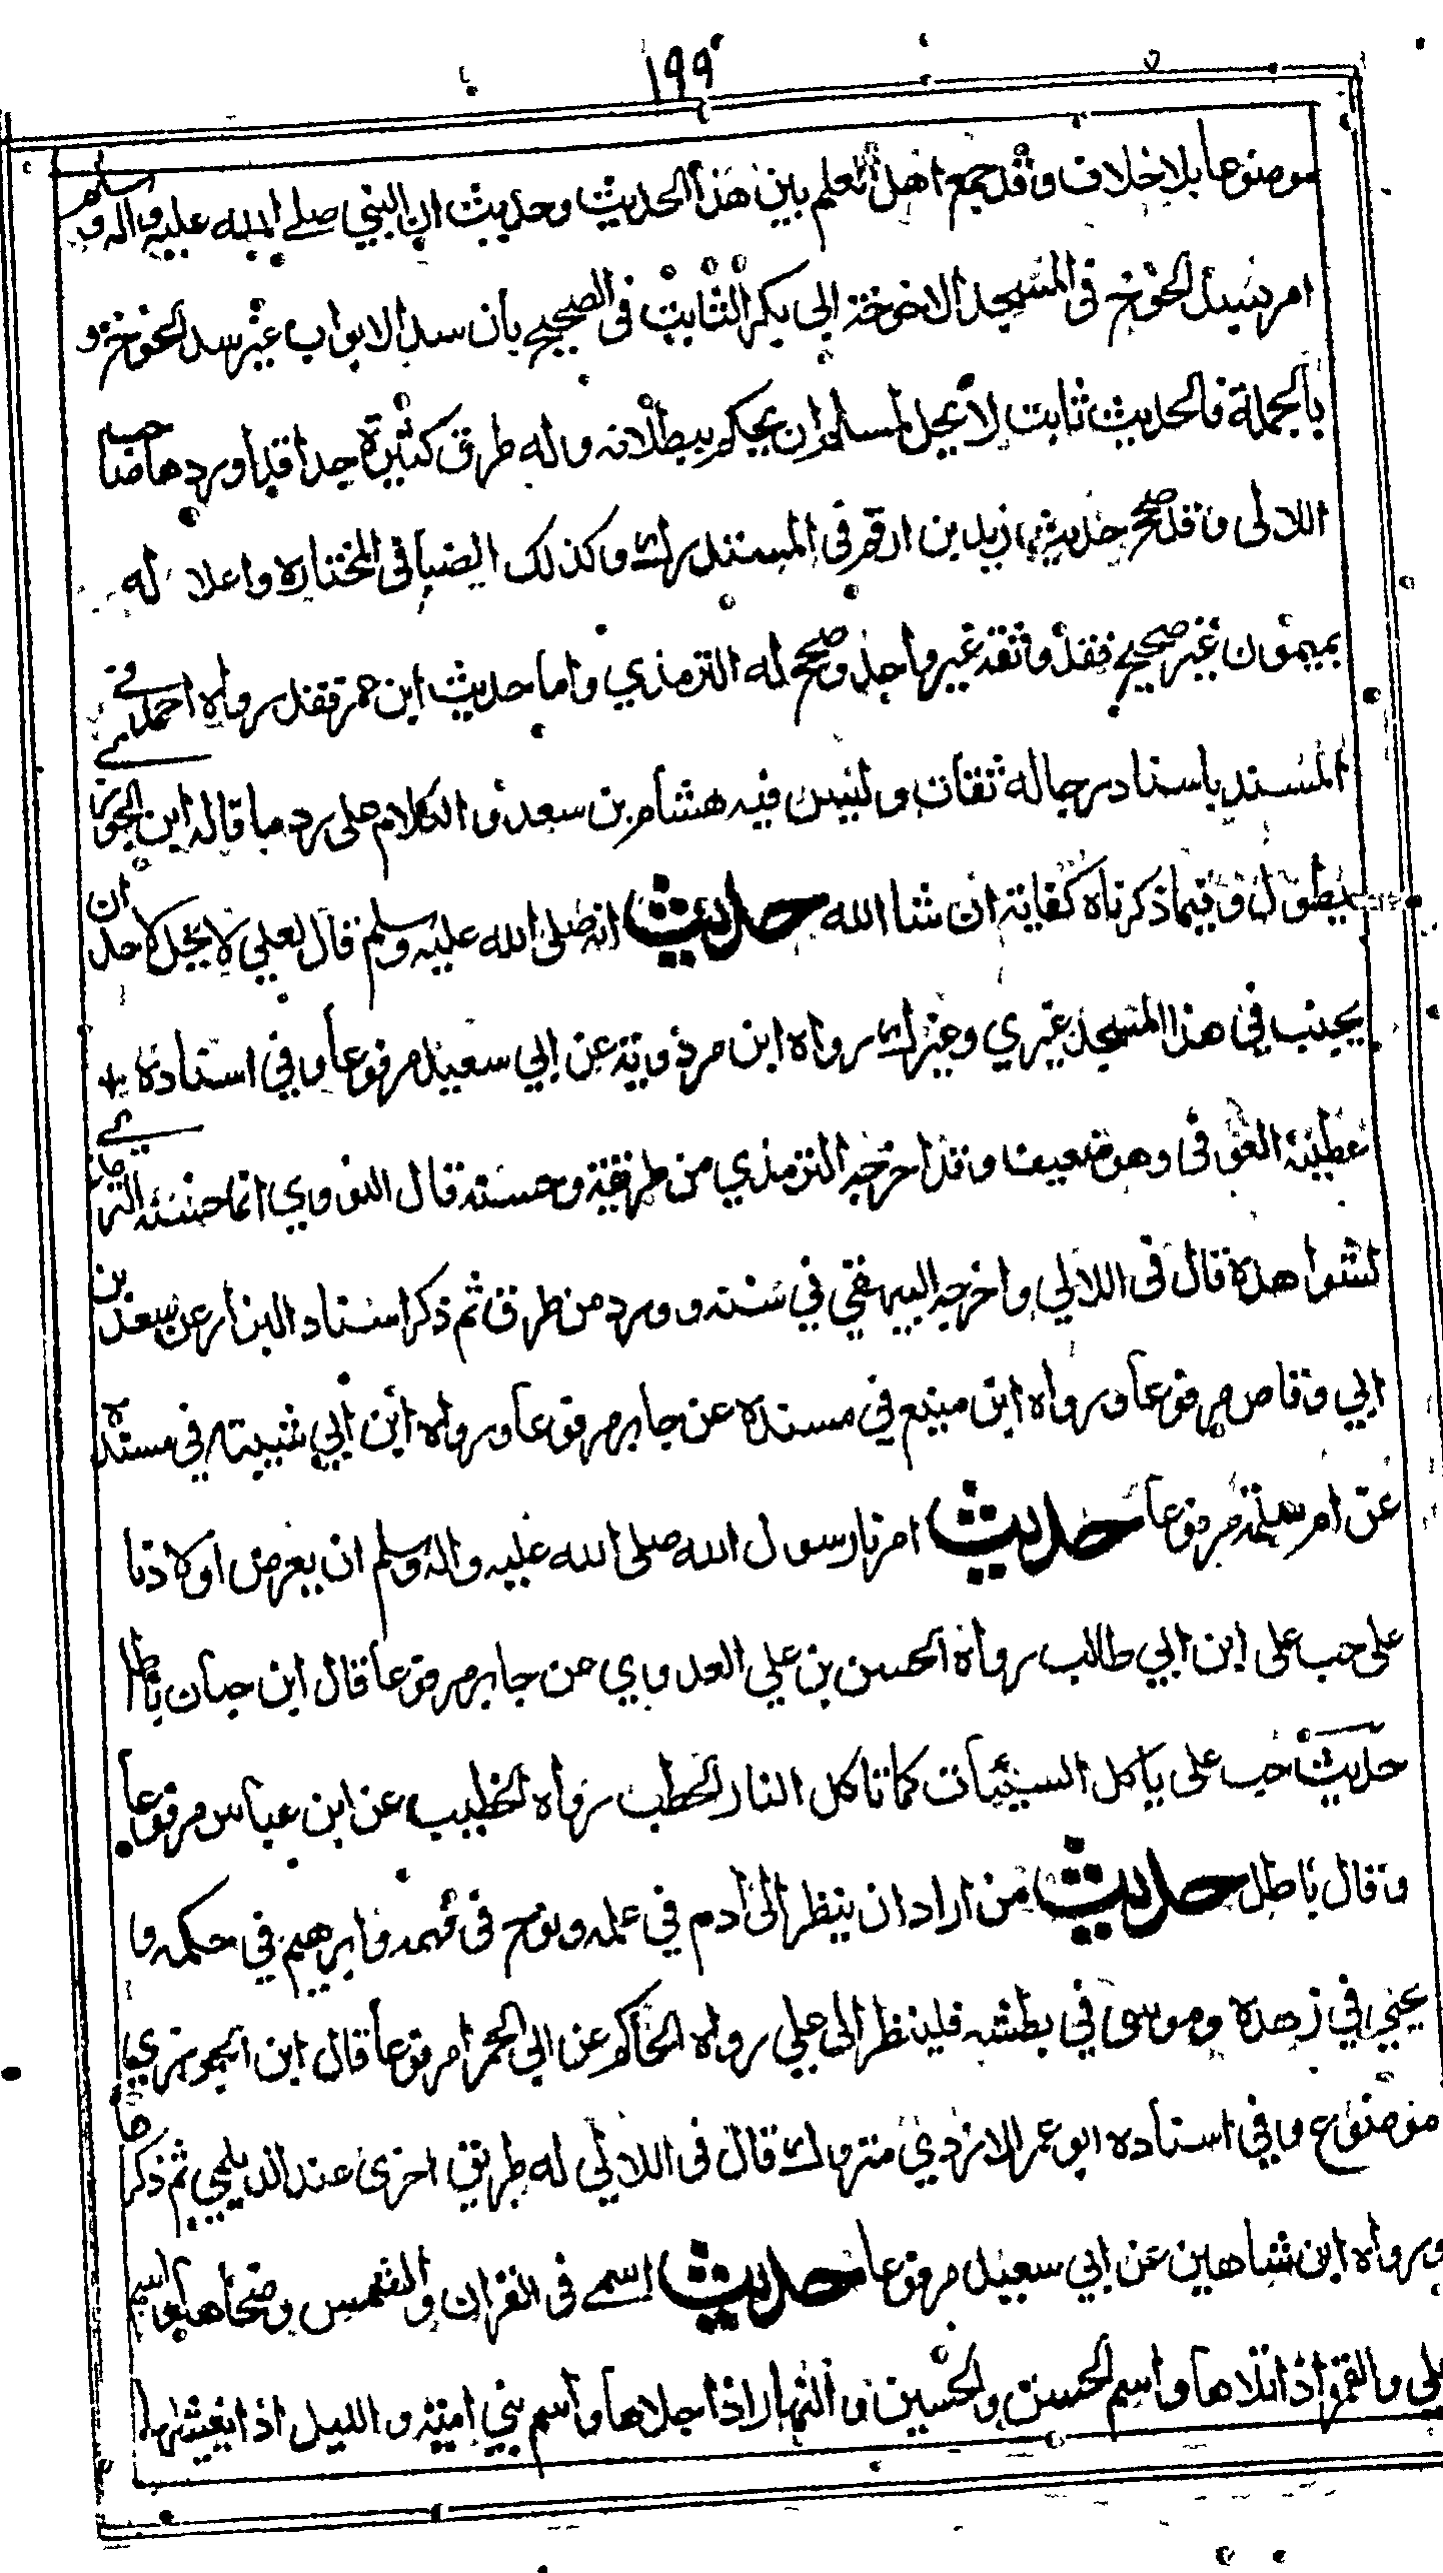 ١٩٩
موضوعا بلا خلاف وقد جمع اهل العلم بين هذا الحديث وحديث ان النبي صلے الله عليه واله وسلم
امر بسد الخوخ في المسجد الا خوخة ابي بكر الثابت في الصحيح بان سد الابواب غير سد الخوخة و
بالجملة فالحديث ثابت لا يحل لمسلم ان يحكم ببطلانه وله طرق كثيرة جدا قد اوردها صاحب
اللالى وقد صح حديث زيد بن ارقم في المستدرك وكذلك الضيا في المختاره واعلاله
بميمون غير صحيح فقد وثقه غير واحد وصحح له الترمذي واما حديث ابن عمر فقد رواه احمد في
المسند باسناد رجاله ثقات وليس فيه هشام بن سعد و الكلام على رد ما قاله ابن الجوزي
يطول وفيما ذكرناه كفاية ان شا الله حديث انه صلى الله عليه وسلم قال لعلي لا يحل لاحد ان
يجنب في هذا المسجد غيري وغيرك رواه ابن مردويه عن ابي سعيد مرفوعا وفي اسناده
عطية العوفى وهو ضعيف وقد اخرجه الترمذي من طريقه وحسنه قال النووي انما حسنه الترمذي
لشواهده قال في اللالي واخرجه البيهقي في سننه وورد من طرق ثم ذكر اسناد البزار عن سعد بن
ابي وقاص مرفوعا ورواه ابن منيع في مسنده عن جابر مرفوعا ورواه ابن ابي شيبة في مسنده
عن ام سلمة مرفوعا حديث امرنا رسول الله صلى الله عليه واله وسلم ان نعرض اولادنا
على حب على ابن ابي طالب رواه الحسن بن علي العدوي عن جابر مرفوعا قال ابن حبان باطل
حديث حب على ياكل السيئات كما تاكل النار الحطب رواه الخطيب عن ابن عباس مرفوعا
وقال باطل حديث من اراد ان ينظر الى ادم في علمه ونوح في فهمه وابرهيم في حكمه و
يحيى في زهده وموسى في بطشه فلينظر الى علي رواه الحاكم عن ابي الحمرا مرفوعا قال ابن الجوزي
موضوع وفي اسناده ابو عمر الازدي متروك قال في اللالي له طريق اخرى عند الديلمي ثم ذكرها
ورواه ابن شاهين عن ابي سعيد مرفوعا حديث اسمے في القران والشمس وضحاها واسم
علي والقمر اذا تلاها واسم الحسن والحسين والنهار اذا جلاها واسم بني امية والليل اذا يغشاها